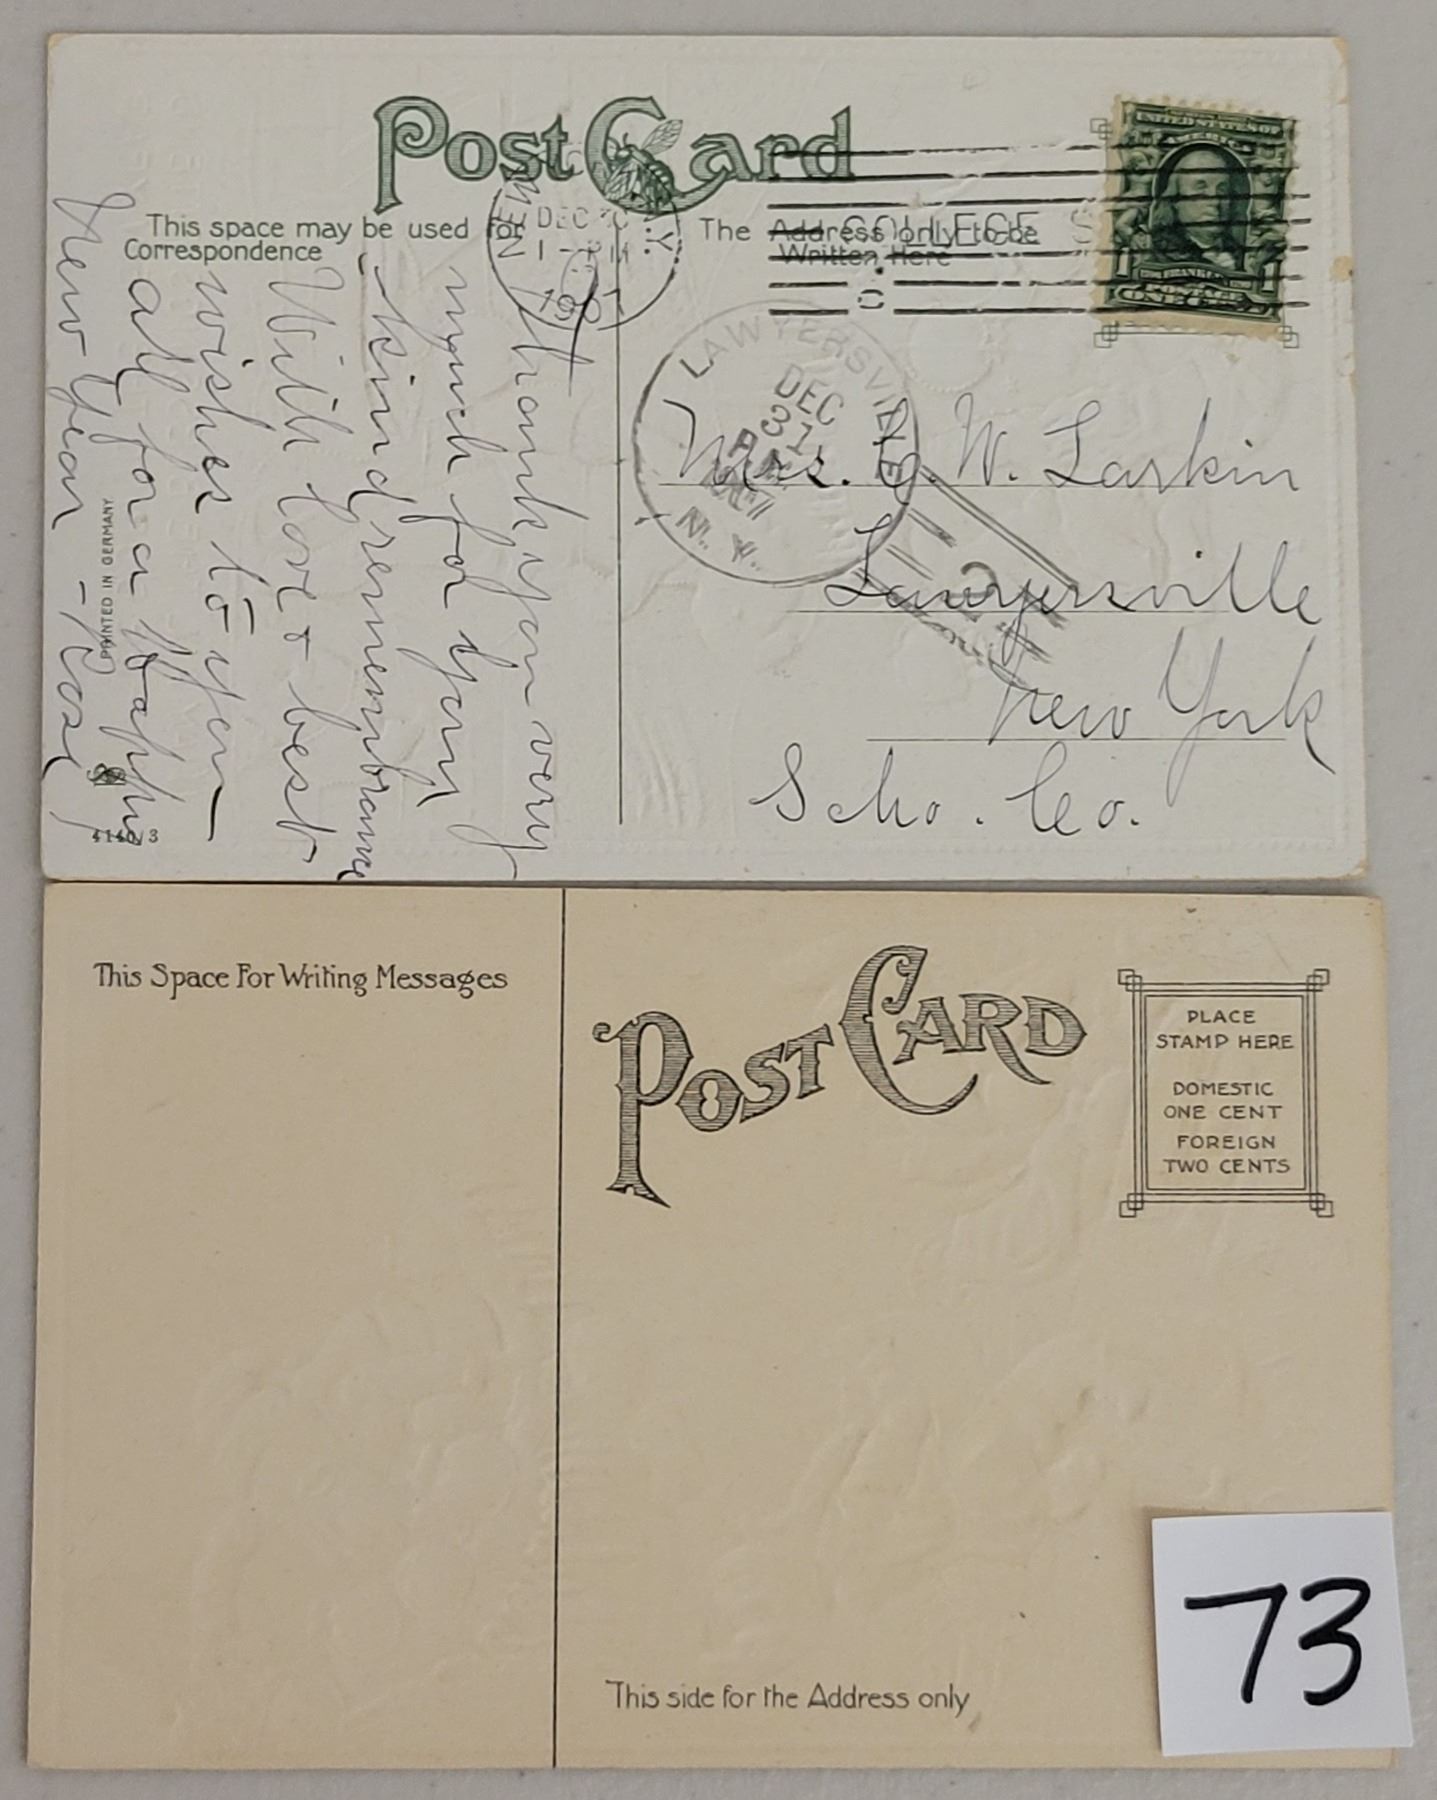 Post Card
This space may be used for
Correspondence
The Address only to be
Written Here
NEW Y.
DEC 30
1 - PM
1907
COLLEGE S
UNITED STATES OF
FRANKLIN
LAWYERSVILLE
DEC
31
N. Y.
Mrs. W. Larkin
Lawyersville
New York
Scho. Co.
Thank you very
much for your
kind remembrance
With love & best
wishes to you
all for a Happy
New Year - Rose
PRINTED IN GERMANY
4140/3
This Space For Writing Messages
POST CARD
PLACE
STAMP HERE
DOMESTIC
ONE CENT
FOREIGN
TWO CENTS
This side for the Address only
73